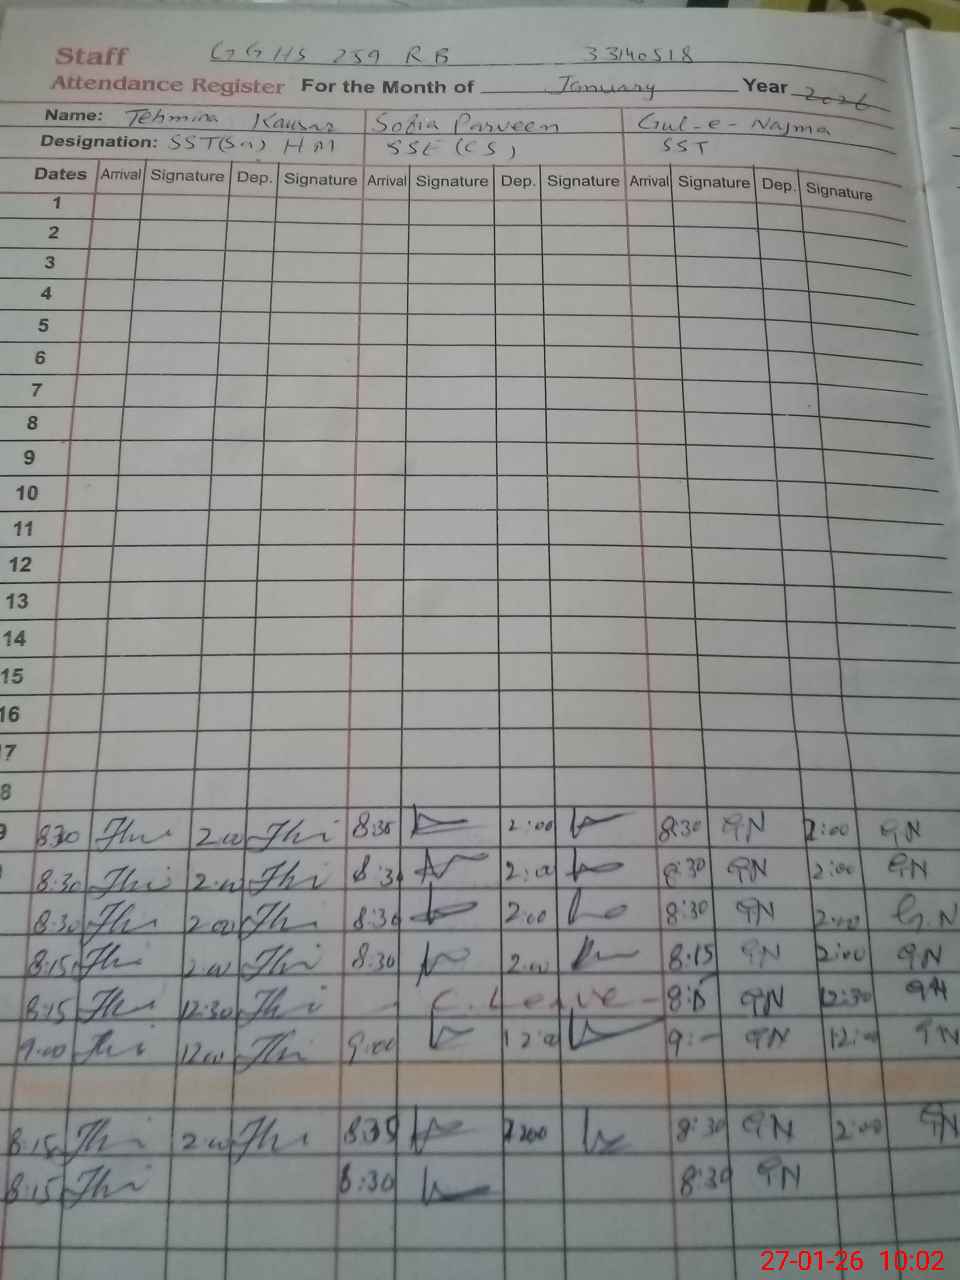 Staff GGHS 259 RB 33140518
Attendance Register For the Month of January Year 2026
Name: Tehmina Kausar Sofia Parveen Gul-e-Najma
Designation: SST(Sn) HM SSE (CS) SST
Dates Arrival Signature Dep. Signature Arrival Signature Dep. Signature Arrival Signature Dep. Signature
1
2
3
4
5
6
7
8
9
10
11
12
13
14
15
16
7
8
9 8:30 2:00 8:30 2:00 8:30 GN 2:00 GN
8:30 2:00 8:30 2:00 8:30 GN 2:00 GN
8:30 2:00 8:30 2:00 8:30 GN 2:00 G.N
8:15 2:00 8:30 2:00 8:15 GN 2:00 GN
8:15 12:30 C. Leave 8:15 GN 12:30 GN
9:00 12:00 9:00 12:00 9:- GN 12:00 GN
8:15 2:00 8:30 2:00 8:30 GN 2:00 GN
8:15 8:30 8:30 GN
27-01-26 10:02